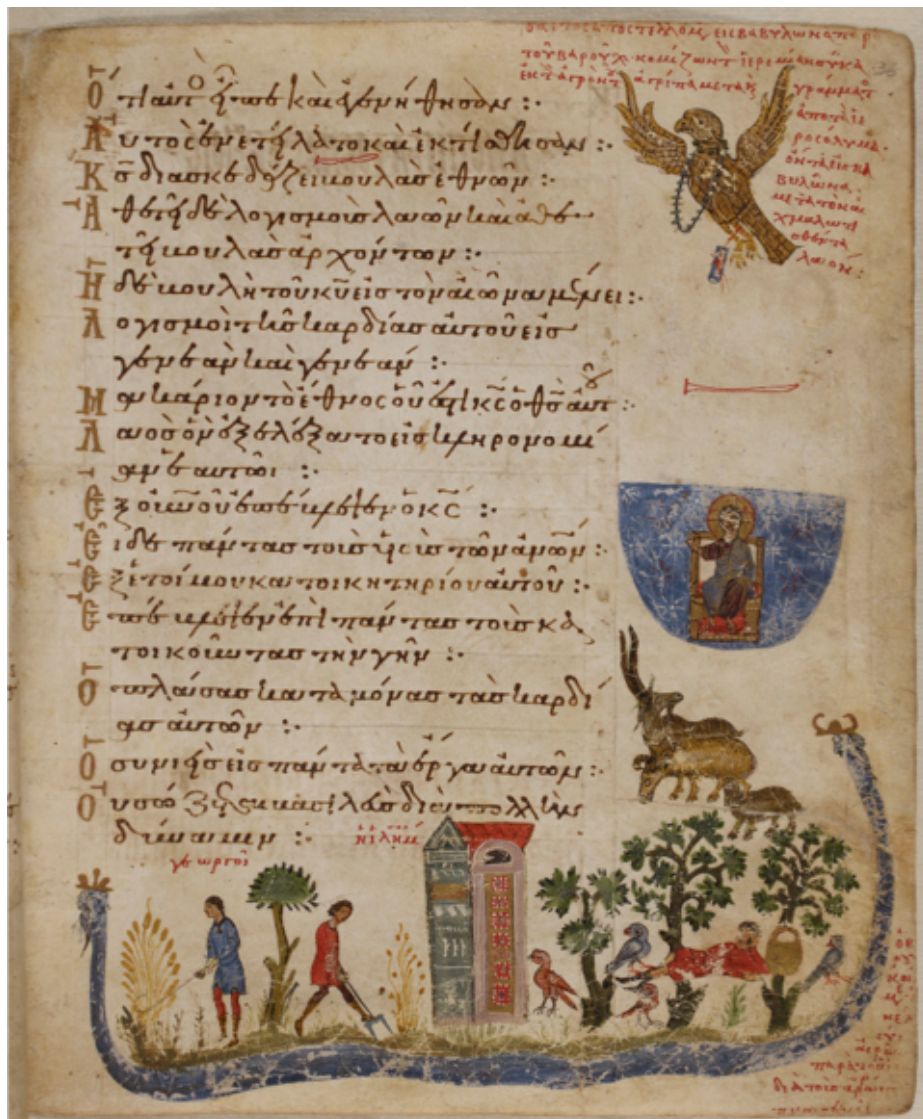 εἰς βαβυλῶνα
τοῦ βαροὺχ κομίζων τ ἱερεμίου
Ὅτι αὐτὸς εἶπε καὶ ἐγενήθησαν :·
γράμματ
ἀπὸ τῆς ἱε
Αὐτὸς ἐνετείλατο καὶ ἐκτίσθησαν :·
ροσολύμα
Κς διασκεδάζει βουλὰς ἐθνῶν :·
βυλῶνα
μετὰ τὸ αἰ
Ἀθετεῖ δὲ λογισμοὺς λαῶν καὶ ἀθε
χμαλωτι
σθῆναι τ
τεῖ βουλὰς ἀρχόντων :·
λαόν :·
Ἡ δὲ βουλὴ τοῦ κυ εἰς τὸν αἰῶνα μένει :·
Λογισμοὶ τῆς καρδίας αὐτοῦ εἰς
γενεὰν καὶ γενεάν :·
Μακάριον τὸ ἔθνος οὗ ἐστι κς ὁ θς αὐτοῦ :·
Λαὸς ὃν ἐξελέξατο εἰς κληρονομί
αν ἑαυτῶι :·
Ἐξ οὐνοῦ ἐπέβλεψεν ὁ κς :·
Εἶδε πάντας τοὺς υἱοὺς τῶν ἀνων :·
Ἐξ ἑτοίμου κατοικητηρίου αὐτοῦ :·
Ἐπέβλεψεν ἐπὶ πάντας τοὺς κα
τοικοῦντας τὴν γῆν :·
Ὁ πλάσας κατὰ μόνας τὰς καρδί
ας αὐτῶν :·
Ὁ συνιεὶς εἰς πάντα τὰ ἔργα αὐτῶν :·
Οὐ σώζεται βασιλεὺς διὰ πολλὴν
δύναμιν :·
γεωργοὶ
ἡ ἱλήμ